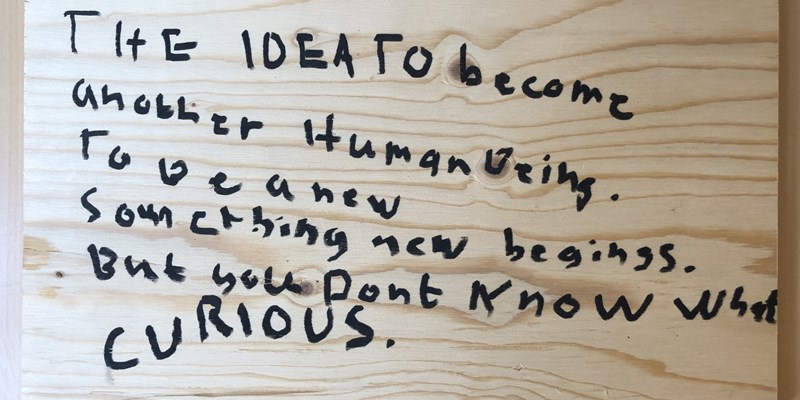 THE IDEA TO become
another Human Being.
To be a new
Somcthing new begings.
But you Dont KNOW What
CURIOUS.